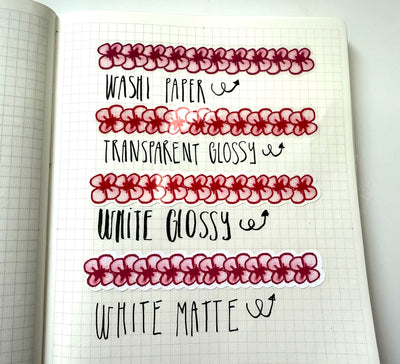 WASHI PAPER
TRANSPARENT GLOSSY
WHITE GLOSSY
WHITE MATTE